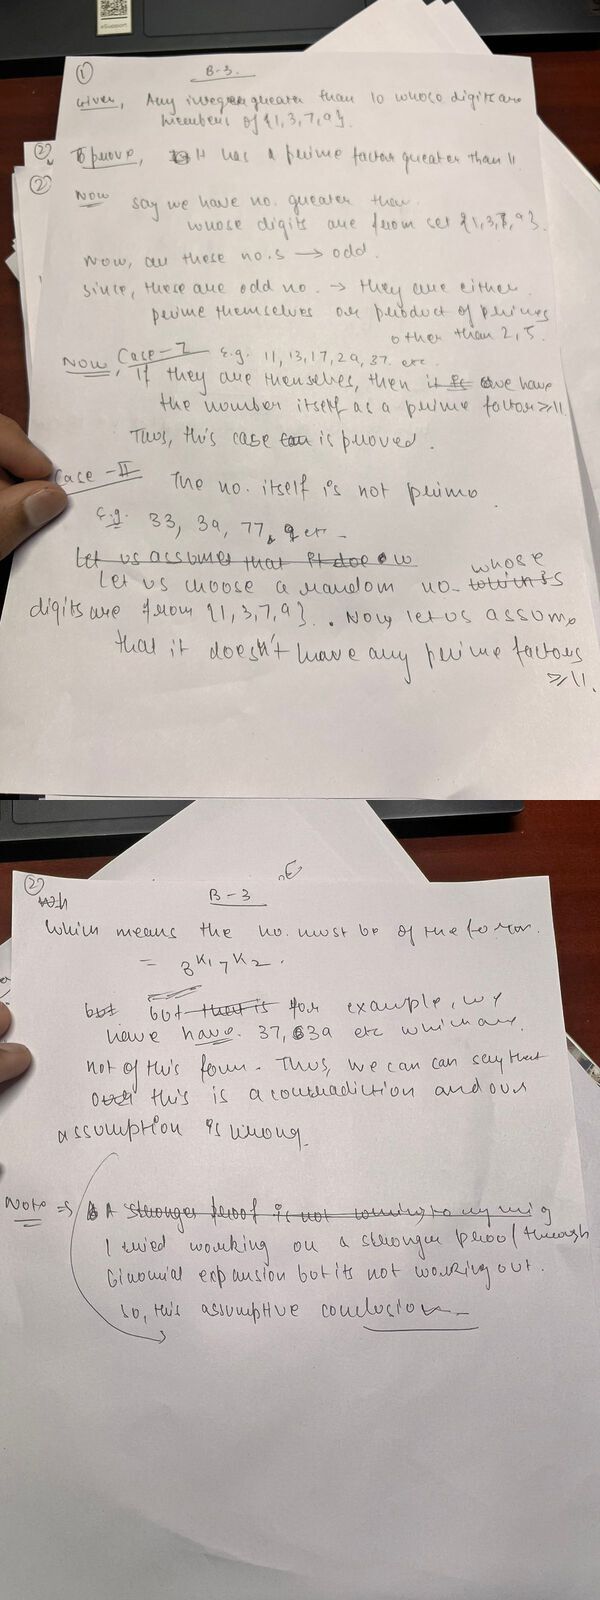 ①
B-3.
Given, Any integer greater than 10 whose digits are
members of {1,3,7,9}.
② To prove, It has a prime factor greater than 11
②
Now say we have no. greater than
whose digits are from set {1,3,7,9}.
Now, all these no.s → odd.
since, these are odd no. → they are either
prime themselves or product of primes
other than 2, 5.
Now, Case-I E.g. 11, 13, 17, 29, 37. etc
If they are themselves, then it is we have
the number itself as a prime factor ⩾ 11.
Thus, this case can is proved.
Case-II The no. itself is not prime.
E.g. 33, 39, 77, etc-
Let us assume that
Let us choose a random no. whose
digits are from {1,3,7,9}. Now let us assume
that it doesn't have any prime factors
⩾ 11.
②
B-3
Which means the no. must be of the form.
= 3^K1 7^K2.
but but that is for example, we
have have 37, 39 etc which are
not of this form. Thus, we can can say that
this is a contradiction and our
assumption is wrong.
Note ⇒ A stronger proof is not coming to my mind
I tried working on a stronger proof through
binomial expansion but its not working out.
So, this assumptive conclusion.